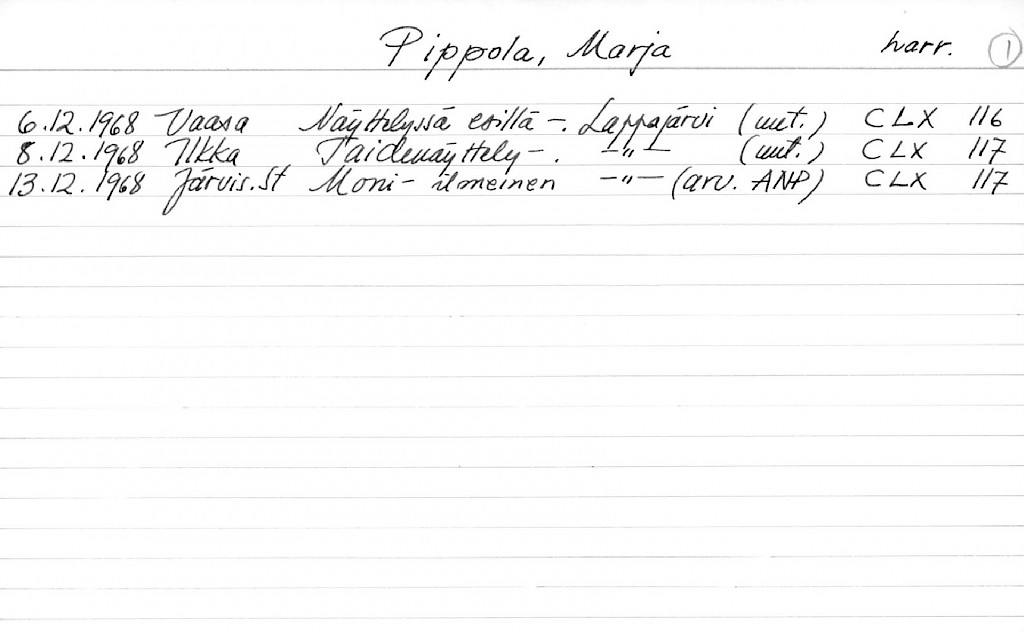 Pippola, Marja harr. 1
6.12.1968 Vaasa Näyttelyssä esillä -. Lappajärvi (uut.) CLX 116
8.12.1968 Ilkka Taidenäyttely -. -"- (uut.) CLX 117
13.12.1968 Järvis.st Moni- ilmeinen -"- (arv. ANP) CLX 117